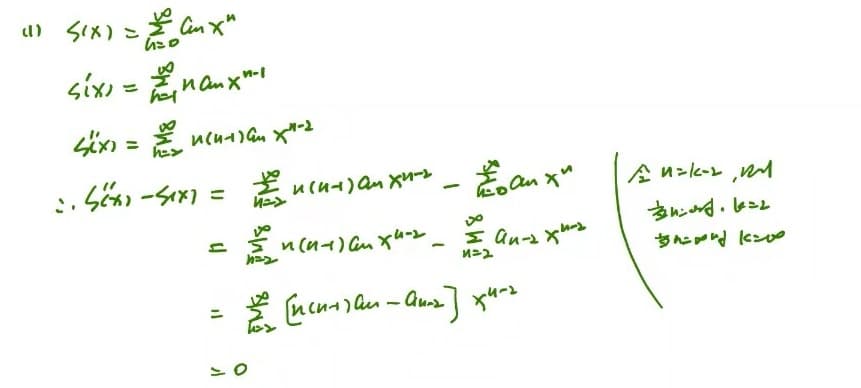 (1) S(x) = ∑_{n=0}^{∞} a_n x^n
S'(x) = ∑_{n=1}^{∞} n a_n x^{n-1}
S''(x) = ∑_{n=2}^{∞} n(n-1) a_n x^{n-2}
∴ S''(x) - S(x) = ∑_{n=2}^{∞} n(n-1) a_n x^{n-2} - ∑_{n=0}^{∞} a_n x^n
= ∑_{n=2}^{∞} n(n-1) a_n x^{n-2} - ∑_{n=2}^{∞} a_{n-2} x^{n-2}
= ∑_{n=2}^{∞} [n(n-1) a_n - a_{n-2}] x^{n-2}
= 0
令 n=k-2, 则
当n=0时, k=2
当n=∞时 k=∞